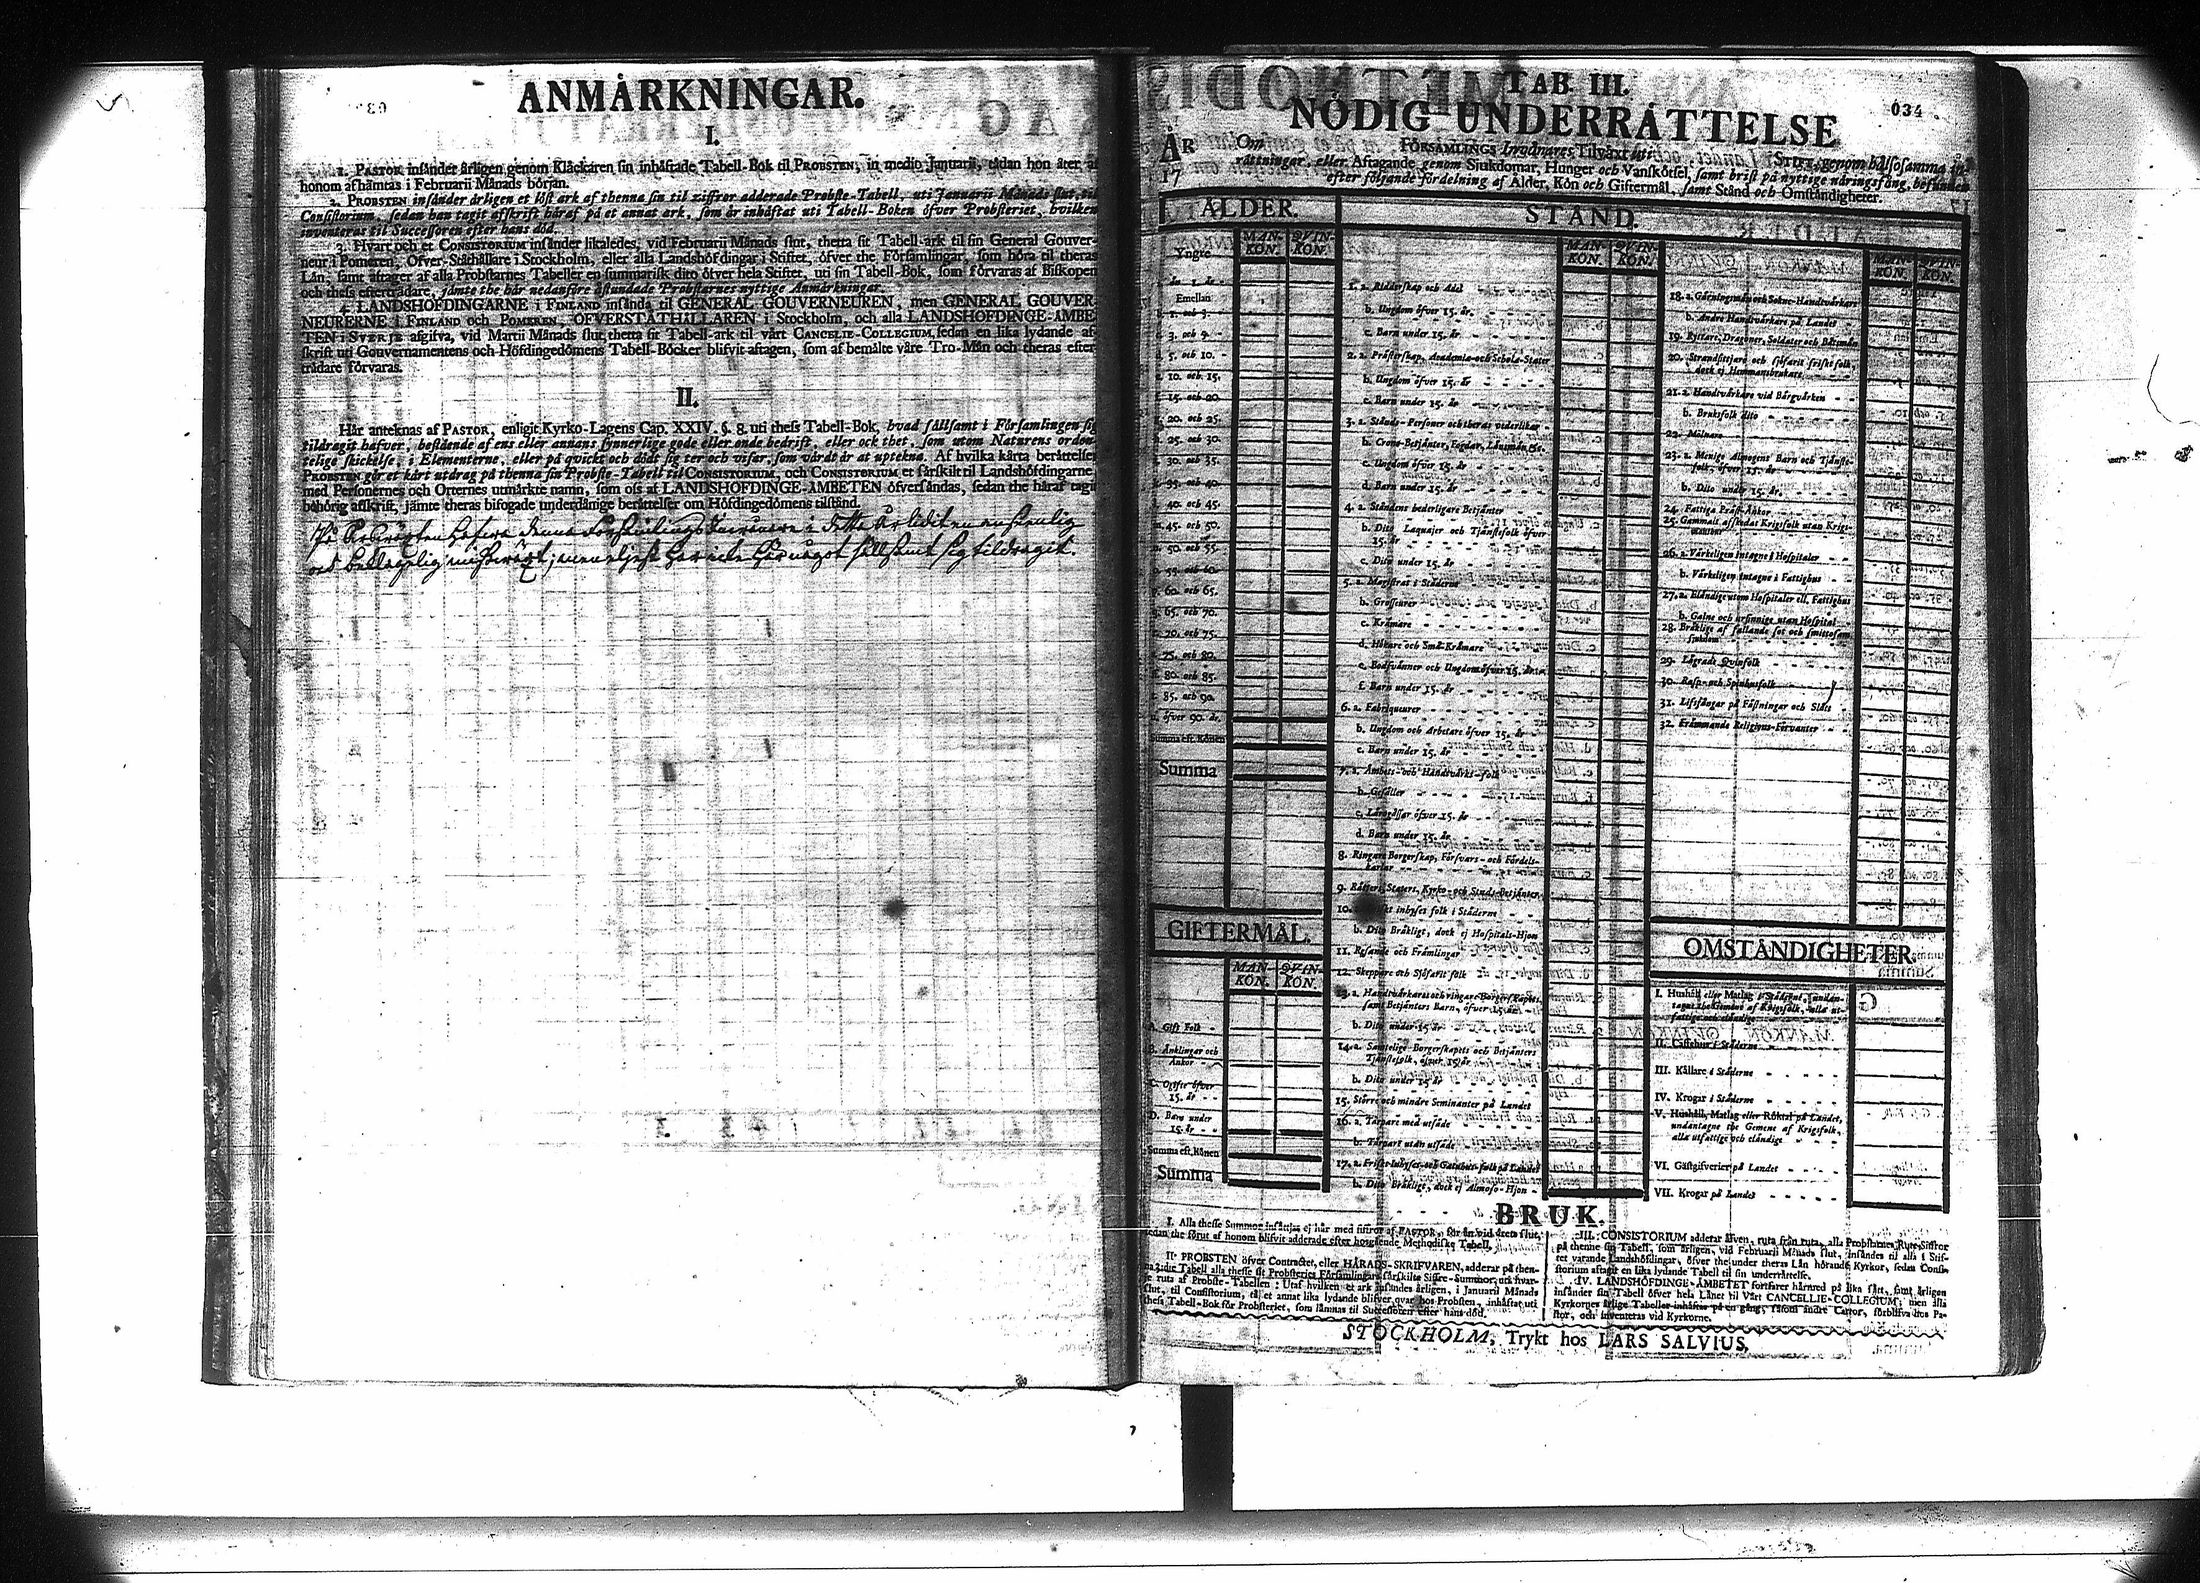 ANMÅRKNINGAR.
I.
1. PASTOR insånder årligen genom Klåckaren sin inhåftade Tabell-Bok til PROBSTEN, in medio Januarii, sådan hon åter af
honom afhåmtas i Februarii Månads början.
2. PROBSTEN insånder årligen et löst ark af thenna sin til ziffror adderade Probste-Tabell, uti Januarii Månads slut, til
Consistorium, sedan han tagit afskrift håraf på et annat ark, som år inhåftat uti Tabell-Boken öfver Probsteriet, hvilken
inventeras til Successoren efter hans död.
3. Hvart och et CONSISTORIUM insånder likaledes, vid Februarii Månads slut, thetta sit Tabell-ark til sin General Gouver-
neur i Pomeren, Öfver-Ståthållare i Stockholm, eller alla Landshöfdingar i Stiftet, öfver the Församlingar, som höra til theras
Lån, samt aftager af alla Probstarnes Tabeller en summarisk dito öfver hela Stiftet, uti sin Tabell-Bok, som förvaras af Biskopen
och thess eftertrådare, jåmte the hår nedanföre åstundade Probstarnes nyttige Anmårkningar.
4. LANDSHÖFDINGARNE i FINLAND insånda til GENERAL GOUVERNEUREN, men GENERAL GOUVER-
NEURERNE i FINLAND och POMEREN, ÖFVERSTÅTHÅLLAREN i Stockholm, och alla LANDSHÖFDINGE-ÅMBE
TEN i SVERJE afgifva, vid Martii Månads slut, thetta sit Tabell-ark til vårt CANCELIE-COLLEGIUM, sedan en lika lydande af-
skrift uti Gouvernamentens och Höfdingedömens Tabell-Böcker blifvit aftagen, som af bemålte våre Tro-Mån och theras efter
trådare förvaras.
II.
Hår anteknas af PASTOR, enligit Kyrko-Lagens Cap. XXIV. §. 8. uti thess Tabell-Bok, hvad sållsamt i Församlingen sig
tildragit hafver, bestående af ens eller annans synnerlige gode eller onde bedrift, eller ock thet, som utom Naturens orden
telige skickelse, i Elementerne, eller på qvickt och dödt sig ter och visar, som vårdt år at uptekna. Af hvilka kårta beråttelser
PROBSTEN gör et kårt utdrag på thenna sin Probste-Tabell til CONSISTORIUM, och CONSISTORIUM et sårskilt til Landshöfdingarne,
med Personernes och Orternes utmårkte namn, som oss af LANDSHÖFDINGE-ÅMBETEN öfversåndas, sedan the håraf tagit
behörig afskrift, jåmte theras bifogade underdånige beråttelser om Höfdingedömens tilstånd.
På Årsväxten hafva denna Församlings Innevånare i detta År lidit en ansenlig
och beklagelig missväxt; men eljest har icke här något sållsamt sig tildragit.
034
TAB. III.
NÖDIG UNDERRÅTTELSE
ÅR Om FÖRSAMLINGS Invånares Tilvåxt uti STIFT, genom hålsosamma in-
17 råttningar, eller Aftagande genom Siukdomar, Hunger och Vanskötsel, samt brist på nyttige nåringsfång, befunden
efter följande fördelning af Ålder, Kön och Giftermål, samt Stånd och Omståndigheter.
ÅLDER.
MAN-KÖN. QVIN-KÖN.
Yngre
ån 1. år
Emellan
1. och 3.
3. och 5.
5. och 10.
10. och 15.
15. och 20.
20. och 25.
25. och 30.
30. och 35.
35. och 40.
40. och 45.
45. och 50.
50. och 55.
55. och 60.
60. och 65.
65. och 70.
70. och 75.
75. och 80.
80. och 85.
85. och 90.
öfver 90. år.
Summa eft. Könen
Summa
GIFTERMÅL.
MAN-KÖN. QVIN-KÖN.
A. Gift Folk
B. Ånklingar och
Ånkor
C. Ogifte öfver
15. år
D. Barn under
15. år
Summa eft. Könen
Summa
STÅND.
MAN-KÖN. QVIN-KÖN.
1. a. Ridderskap och Adel
b. Ungdom öfver 15. år.
c. Barn under 15. år.
2. a. Pråsterskap, Academia- och Schola-Stater
b. Ungdom öfver 15. år
c. Barn under 15. år
3. a. Stånds-Personer och theras vederlikar
b. Crono-Betjänter, Fogdar, Länsmån &c.
c. Ungdom öfver 15. år
d. Barn under 15. år
4. a. Ståndens hederligare Betjänter
b. Dito Laquajer och Tjånstefolk öfver
15. år
c. Dito under 15. år
5. a. Magistrat i Ståderne
b. Grosseurer
c. Kråmare
d. Hökare och Små-Kråmare
e. Bodsvånner och Ungdom öfver 15. år
f. Barn under 15. år
6. a. Fabriqueurer
b. Ungdom och Arbetare öfver 15. år
c. Barn under 15. år
7. a. Åmbets- och Handtvårks-folk
b. Gesåller
c. Lårogåssar öfver 15. år
d. Barn under 15. år
8. Ringare Borgerskap, Försvars- och Fördels-
Karlar
9. Råttens, Statens, Kyrko- och Stads-Betjänter
inhyses folk i Ståderne
b. Dito Bråkligt, dock ej Hospitals-Hjon
11. Resande och Fråmlingar
12. Skeppare och Sjöfarit folk
13. a. Handtvårkares och ringare Borgerskapets,
samt Betjänters Barn, öfver 15. år
b. Dito under 15. år
14. a. Samtelige Borgerskapets och Betjänters
Tjånstefolk, öfver 15. år
b. Dito under 15. år
15. Större och mindre Seminanter på Landet
16. a. Torpare med utsåde
b. Torpare utan utsåde
17. a. Friske Inhyses- och Gatuhus-folk på Landet
b. Dito Bråkligt, dock ej Allmoso-Hjon
MAN-KÖN. QVIN-KÖN.
18. a. Gårningsmån och Sokne-Handtvårkare
b. Andre Handtvårkare på Landet
19. Ryttare, Dragoner, Soldater och Båtsmån
20. Strandsittjare och sjöfarit friskt folk,
dock ej Hemmansbrukare
21. a. Handtvårkare vid Bårgvårken
b. Bruksfolk dito
22. Mölnare
23. a. Menige Almogens Barn och Tjånste-
folk, öfver 15. år
b. Dito under 15. år.
24. Fattiga Pråst-Ånkor
25. Gammalt afskedat Krigsfolk utan Krigs-
26. a. Vårkeligen intagne i Hospitaler
b. Vårkeligen intagne i Fattighus
27. a. Eländige utom Hospitaler ell. Fattighus
b. Galne och ursinnige utan Hospital
28. Bråklige af fallande sot och smittosam
sjukdom
29. Lågrade Qvinfolk
30. Rasp- och Spinhusfolk
31. Lifsfångar på Fåstningar och Slått
32. Fråmmande Religions-Förvanter
OMSTÅNDIGHETER.
I. Hushåll eller Matlag i Ståderne, undan-
tagne the Gemene af Krigsfolk, alla ut-
fattige och elåndige
II. Caffehus i Ståderne
III. Kållare i Ståderne
IV. Krogar i Ståderne
V. Hushåll, Matlag eller Röktal på Landet,
undantagne the Gemene af Krigsfolk,
alla utfattige och elåndige
VI. Gåstgifverier på Landet
VII. Krogar på Landet
BRUK.
I. Alla thesse Summor insåttjas ej hår med siffror af PASTOR, för ån vid årets slut,
sedan the förut af honom blifvit adderade efter hosgående Methodiske Tabell.
II. PROBSTEN öfver Contractet, eller HÅRADS-SKRIFVAREN, adderar på then-
na 3:die Tabell alla thesse sit Probsteries Församlingars sårskilte Siffre-Summor, uti hvar-
je ruta af Probste-Tabellen: Utaf hvilken et ark insåndes årligen, i Januarii Månads
slut, til Consistorium, så et annat lika lydande blifver qvar hos Probsten, inhåftat uti
thess Tabell-Bok för Probsteriet, som låmnas til Successoren efter hans död.
III. CONSISTORIUM adderar åfven, ruta från ruta, alla Probstarnes Rute-Siffror
på thenne sin Tabell, som årligen, vid Februarii Månads slut, insåndes til alla i Stif-
tet varande Landshöfdingar, öfver the under theras Lån hörande Kyrkor, sedan Consi-
storium aftagit en lika lydande Tabell til sin underråttelse.
IV. LANDSHÖFDINGE-ÅMBETET fortfarer hårmed på lika sått, samt årligen
insånder sin Tabell öfver hela Lånet til Vårt CANCELLIE-COLLEGIUM; men alla
Kyrkornes årlige Tabeller inhåftas på en gång, såsom andre Cartor, förblifva hos Pa-
stor, och inventeras vid Kyrkorne.
STOCKHOLM, Trykt hos LARS SALVIUS.